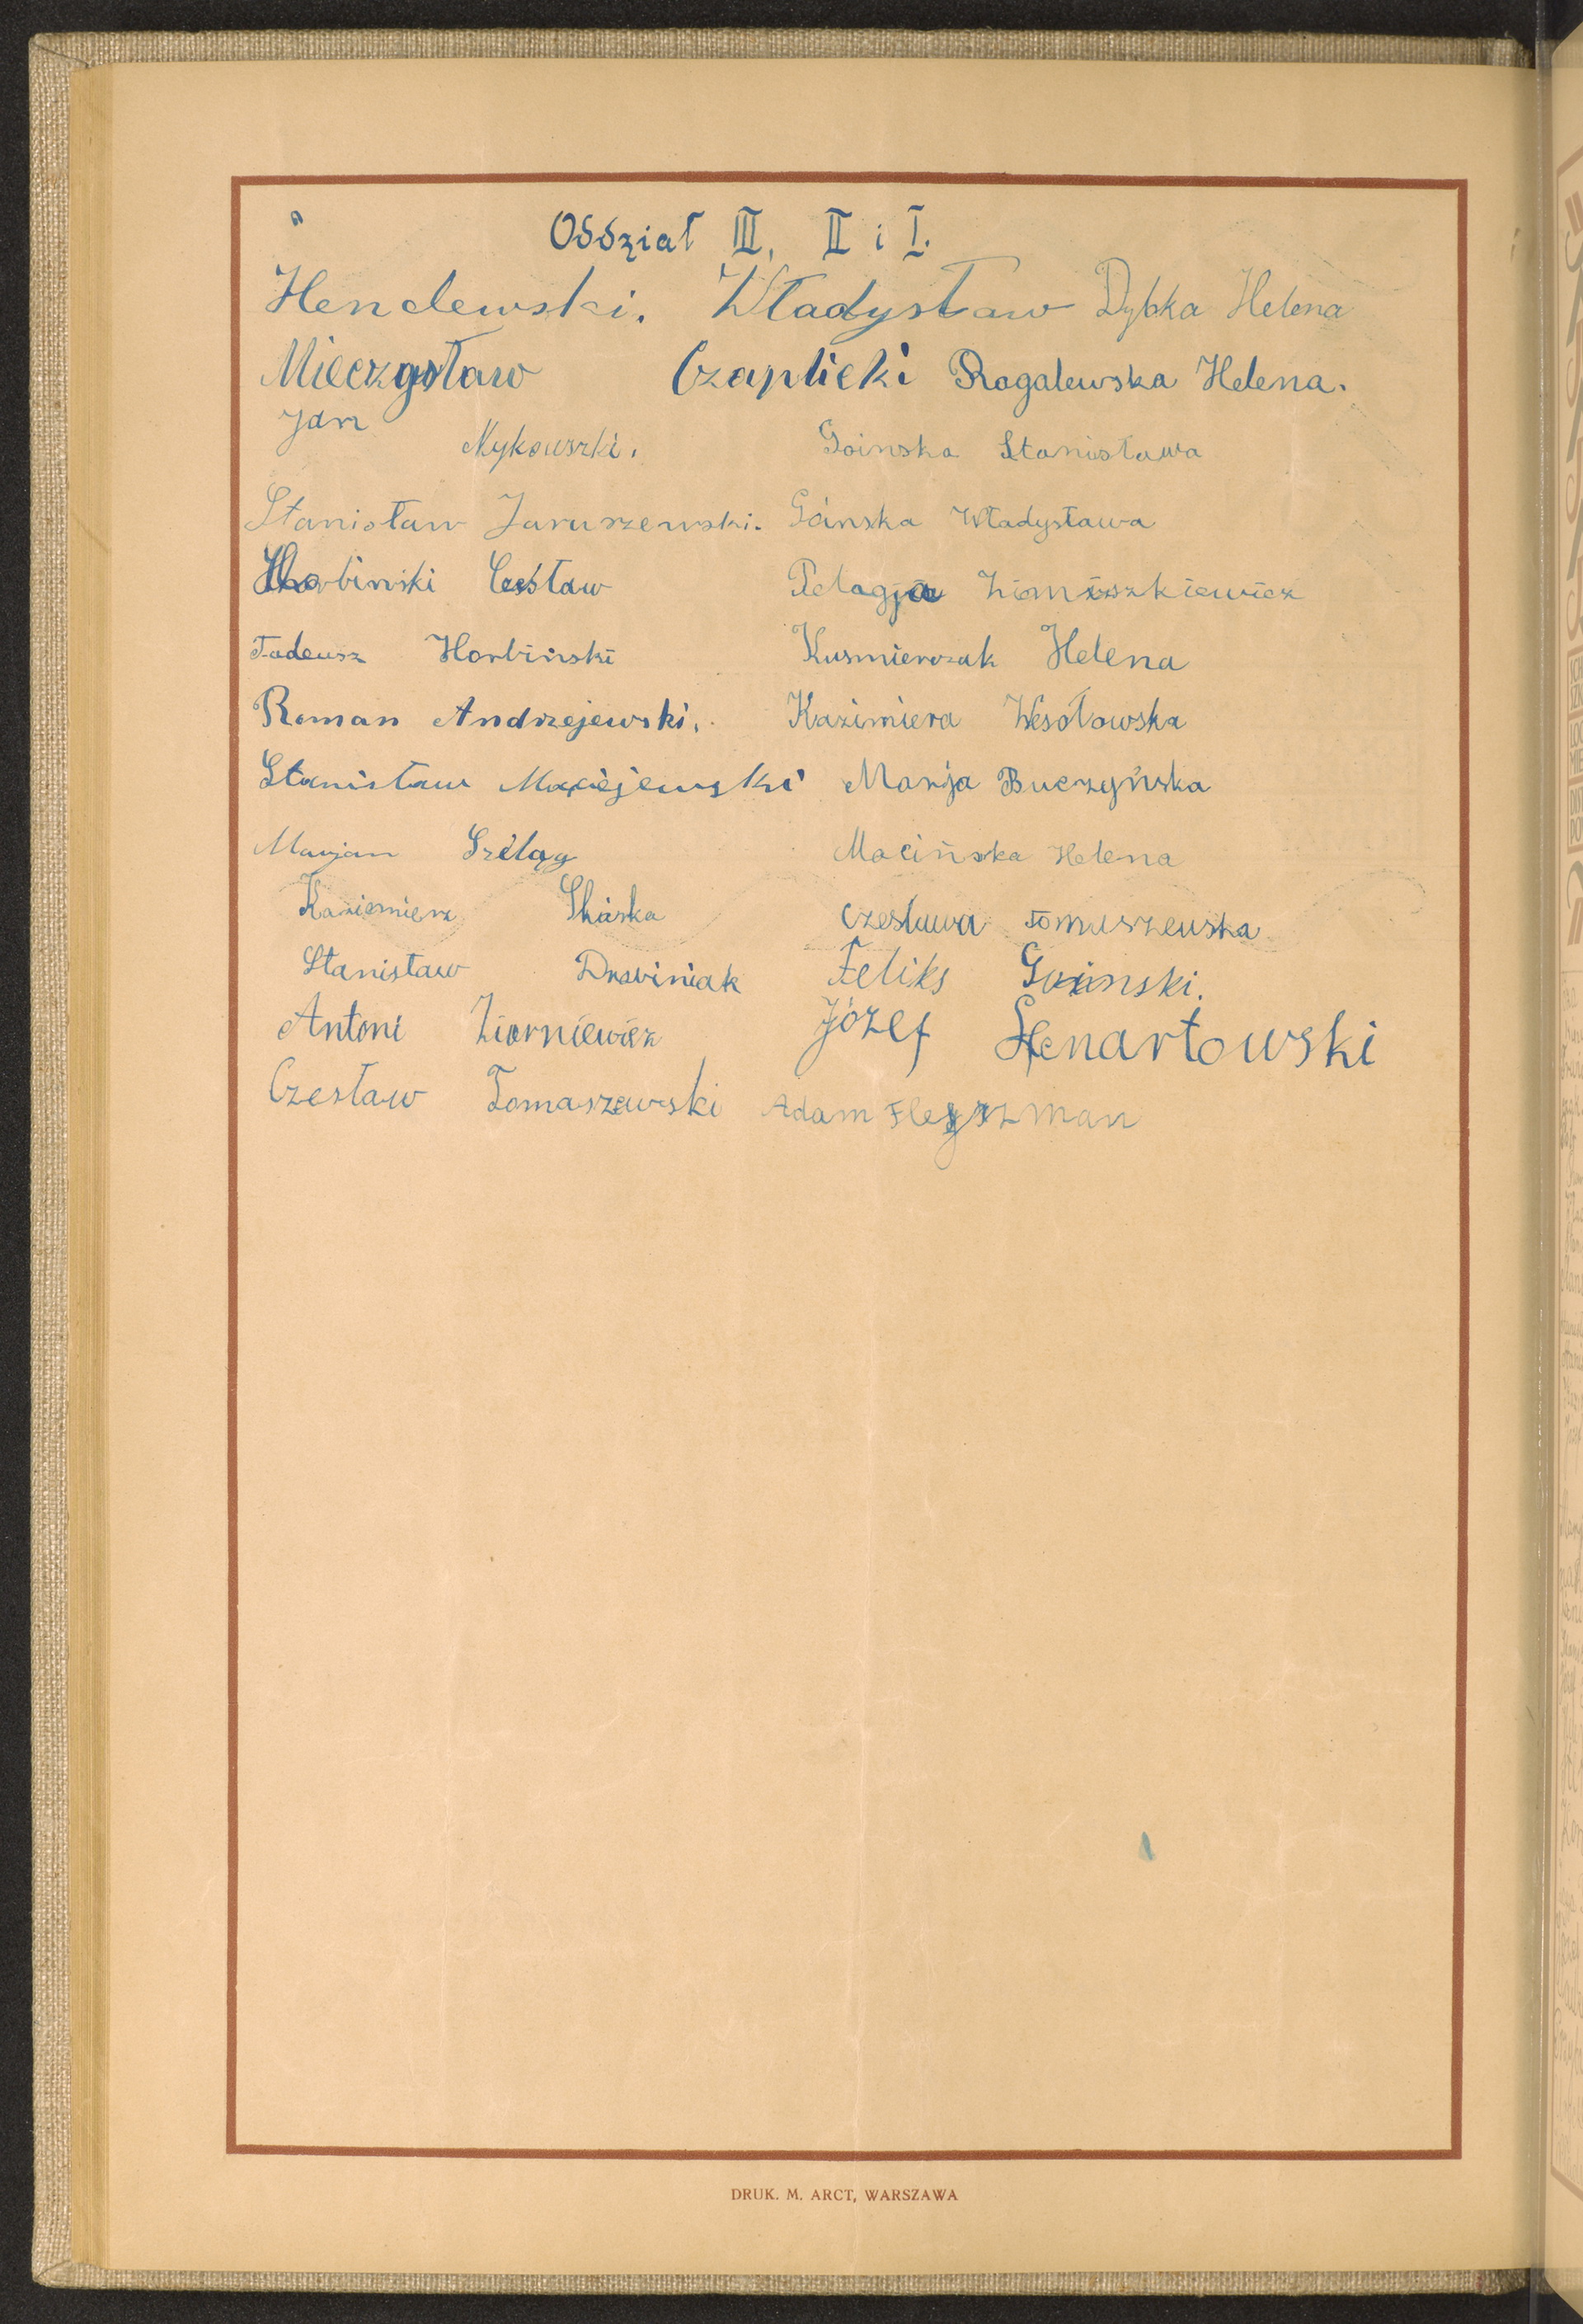 Oddział III, II i I.
Hendewski. Władysław Dybka Helena
Mieczysław Czaplicki Rogalewska Helena.
Jan Nykowszki. Goinska Stanisława
Stanisław Jaruszewski. Góinska Władysława
Horbinski Czesław Pelagja
Tadeusz Horbiński Kusmierczak Helena
Roman Andrzejewski. Kazimiera Wesołowska
Stanisław Maciejewski Marja Buczyńska
Marjan Szeląg Macińska Helena
Kaziemierz Skąska Czesława Tomaszewska
Stanisław Drowiniak Feliks Goinski.
Antoni Ziorniewicz Józef Lenartowski
Czesław Tomaszewski Adam Flejszman
DRUK. M. ARCT, WARSZAWA